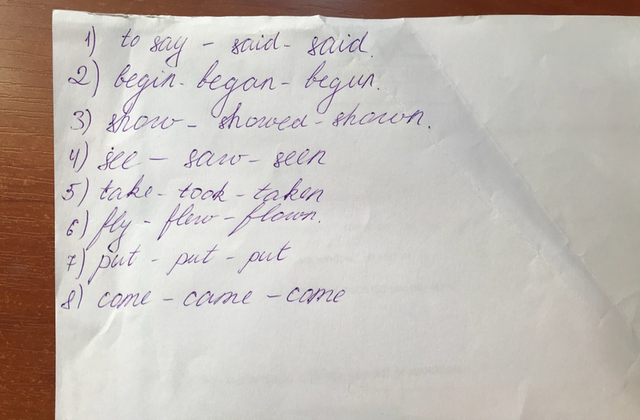 1) to say - said - said.
2) begin - began - begun.
3) show - showed - shown.
4) see - saw - seen
5) take - took - taken
6) fly - flew - flown.
7) put - put - put
8) come - came - come